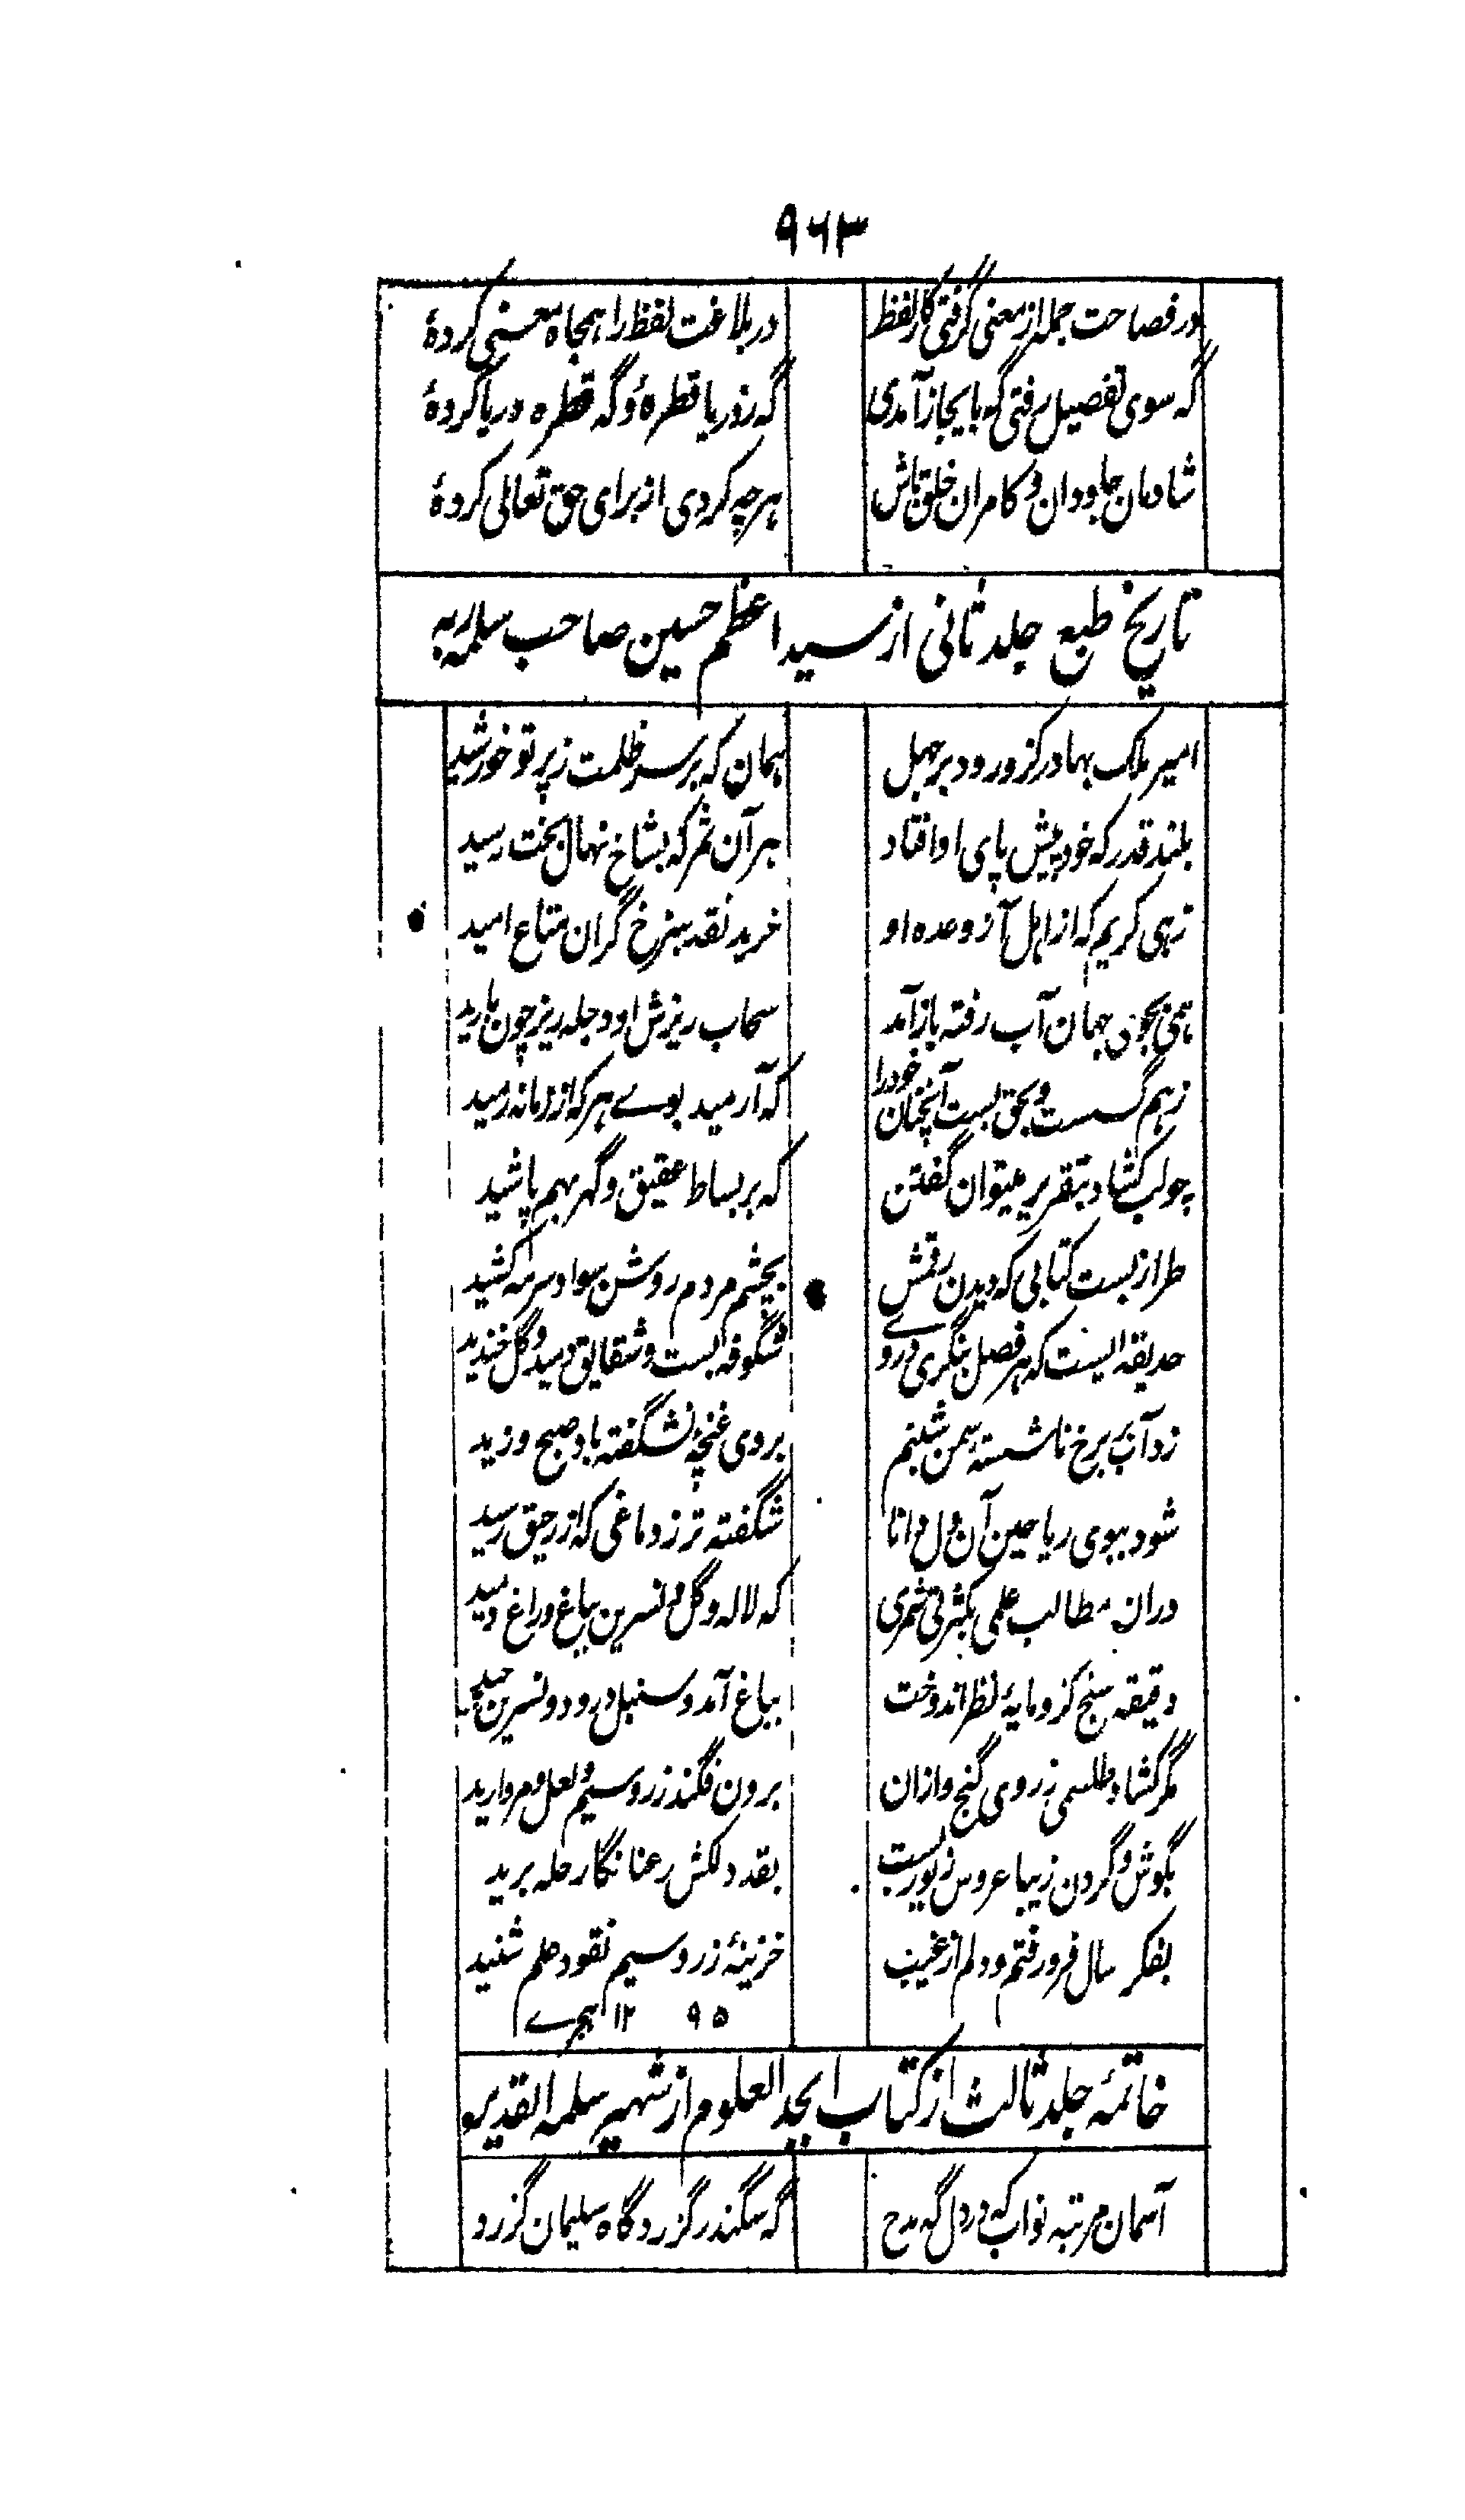 ۹۶۳
در فصاحت جمله از معنی گرفتی کار لفظ
در بلاغت لفظ را همجاه معنی کردهٔ
که سوی تفصیل رفتی گه بایجاز آمدی
گه ز دریا قطرهٔ و گه قطره دریا کردهٔ
شادمان جاودان و کامران خلق باش
هرچه کردی از برای حق تعالی کردهٔ
تاریخ طبع جلد ثانی از سید اعظم حسین صاحب سلمه ربه
امیر ملک بهادر کزو رود بر جهل
همان که بر سر ظلمت ز پرتو خورشید
بلند قدر که خود پیش پای او افتاد
هر آن ثمر که بشاخ نهال بخت رسید
زهی کریم که از اهل آز وعده او
خرید نقد بنرخ گران متاع امید
همی بجوی جهان آب رفته باز آمد
سحاب ریزش او دجله ریز چون بارید
ز هم گسست و بحق بست آنچنان خود را
که آرمید بوے هر که از زمانه رمید
چو لب کشاد بتقریر میتوان گفتن
که بر بساط عقیق و گهر بهم پاشید
طراز بست کتابی که دیدن رقمش
بچشم مردم روشن سواد سرمه کشید
حدیقه ایست که هر فصل بنگری در وے
شگوفه بست و شقایق دمید و گل خندید
زد آب بر رخ ناشسته سمن شبنم
بروی غنچهٔ نشگفته باد صبح وزید
شود ببوی ریاحین آن دل دانا
شگفته تر ز دماغی که از رحیق رسید
دران مطالب علمی بکثرتی شمری
که لاله و گل و نسرین بباغ و راغ دمید
دقیقه سنج کزو مایهٔ نظر اندوخت
بباغ آمد و سنبل درود و نسرین چید
مگر کشاد طلسمی ز روی گنج و ازان
برون فگند زر و سیم و لعل و مروارید
بگوش و گردن زیبا عروس زیور بست
بقد دلکش رعنا نگار حله برید
بفکر سال فرو رفتم و دلم از غیب
خزینهٔ زر و سیم نقود علم شنید
۱۲ ۹۵ ہجرے
خاتمهٔ جلد ثالث از کتاب ابجد العلوم از شهیر سلمه القدیر
آسمان مرتبه نواب که در دل گه مدح
گه سکندر گزرد گاه سلیمان گزرد